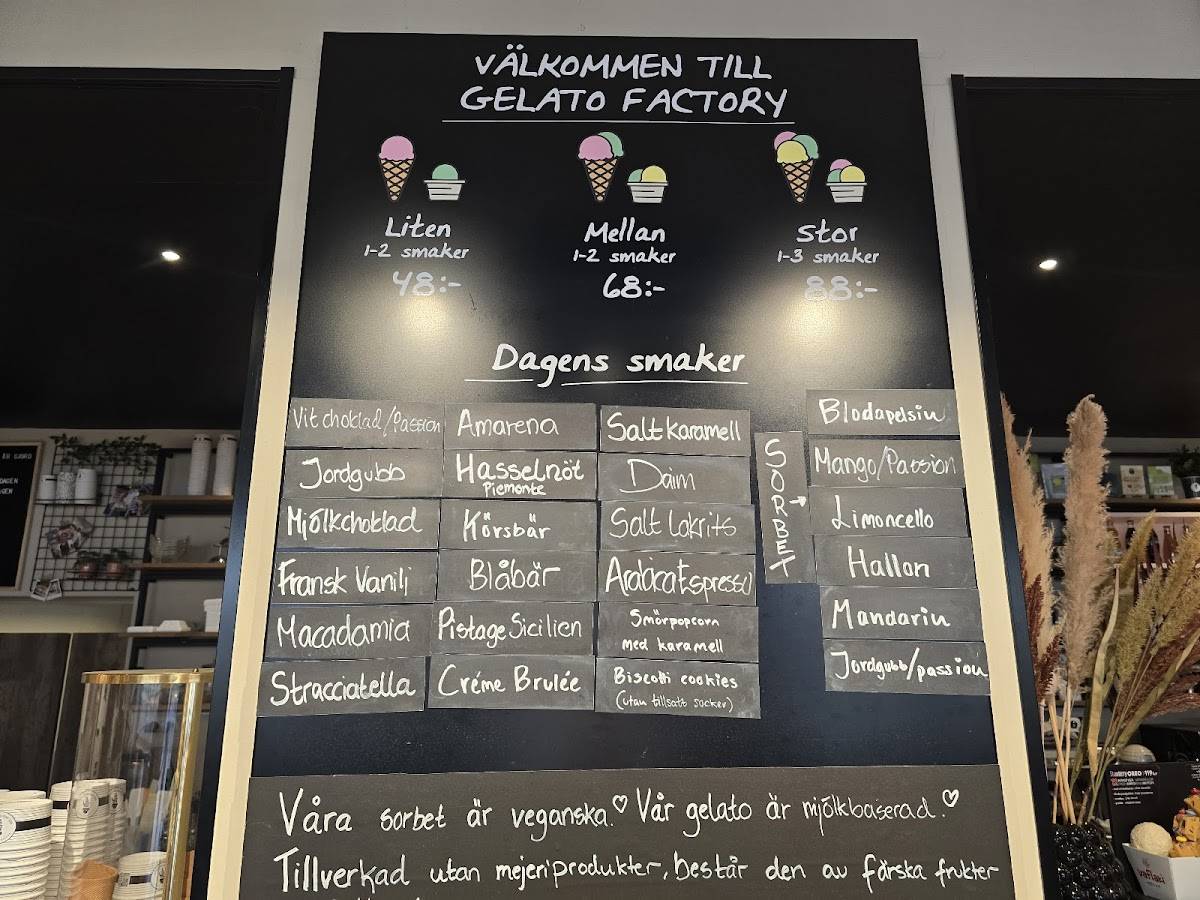 VÄLKOMMEN TILL
GELATO FACTORY
Liten
1-2 smaker
48:-
Mellan
1-2 smaker
68:-
Stor
1-3 smaker
88:-
Dagens smaker
Vit choklad/Passion
Jordgubb
Mjölkchoklad
Fransk Vanilj
Macadamia
Stracciatella
Amarena
Hasselnöt
Piemonte
Körsbär
Blåbär
Pistage Sicilien
Créme Brulée
Salt karamell
Daim
Salt Lakrits
Arabica Espresso
Smörpopcorn
med karamell
Biscotti cookies
(utan tillsatt socker)
SORBET →
Blodapelsin
Mango/Passion
Limoncello
Hallon
Mandarin
Jordgubb/passion
Våra sorbet är veganska.♡ Vår gelato är mjölkbaserad.♡
Tillverkad utan mejeriprodukter, består den av färska frukter